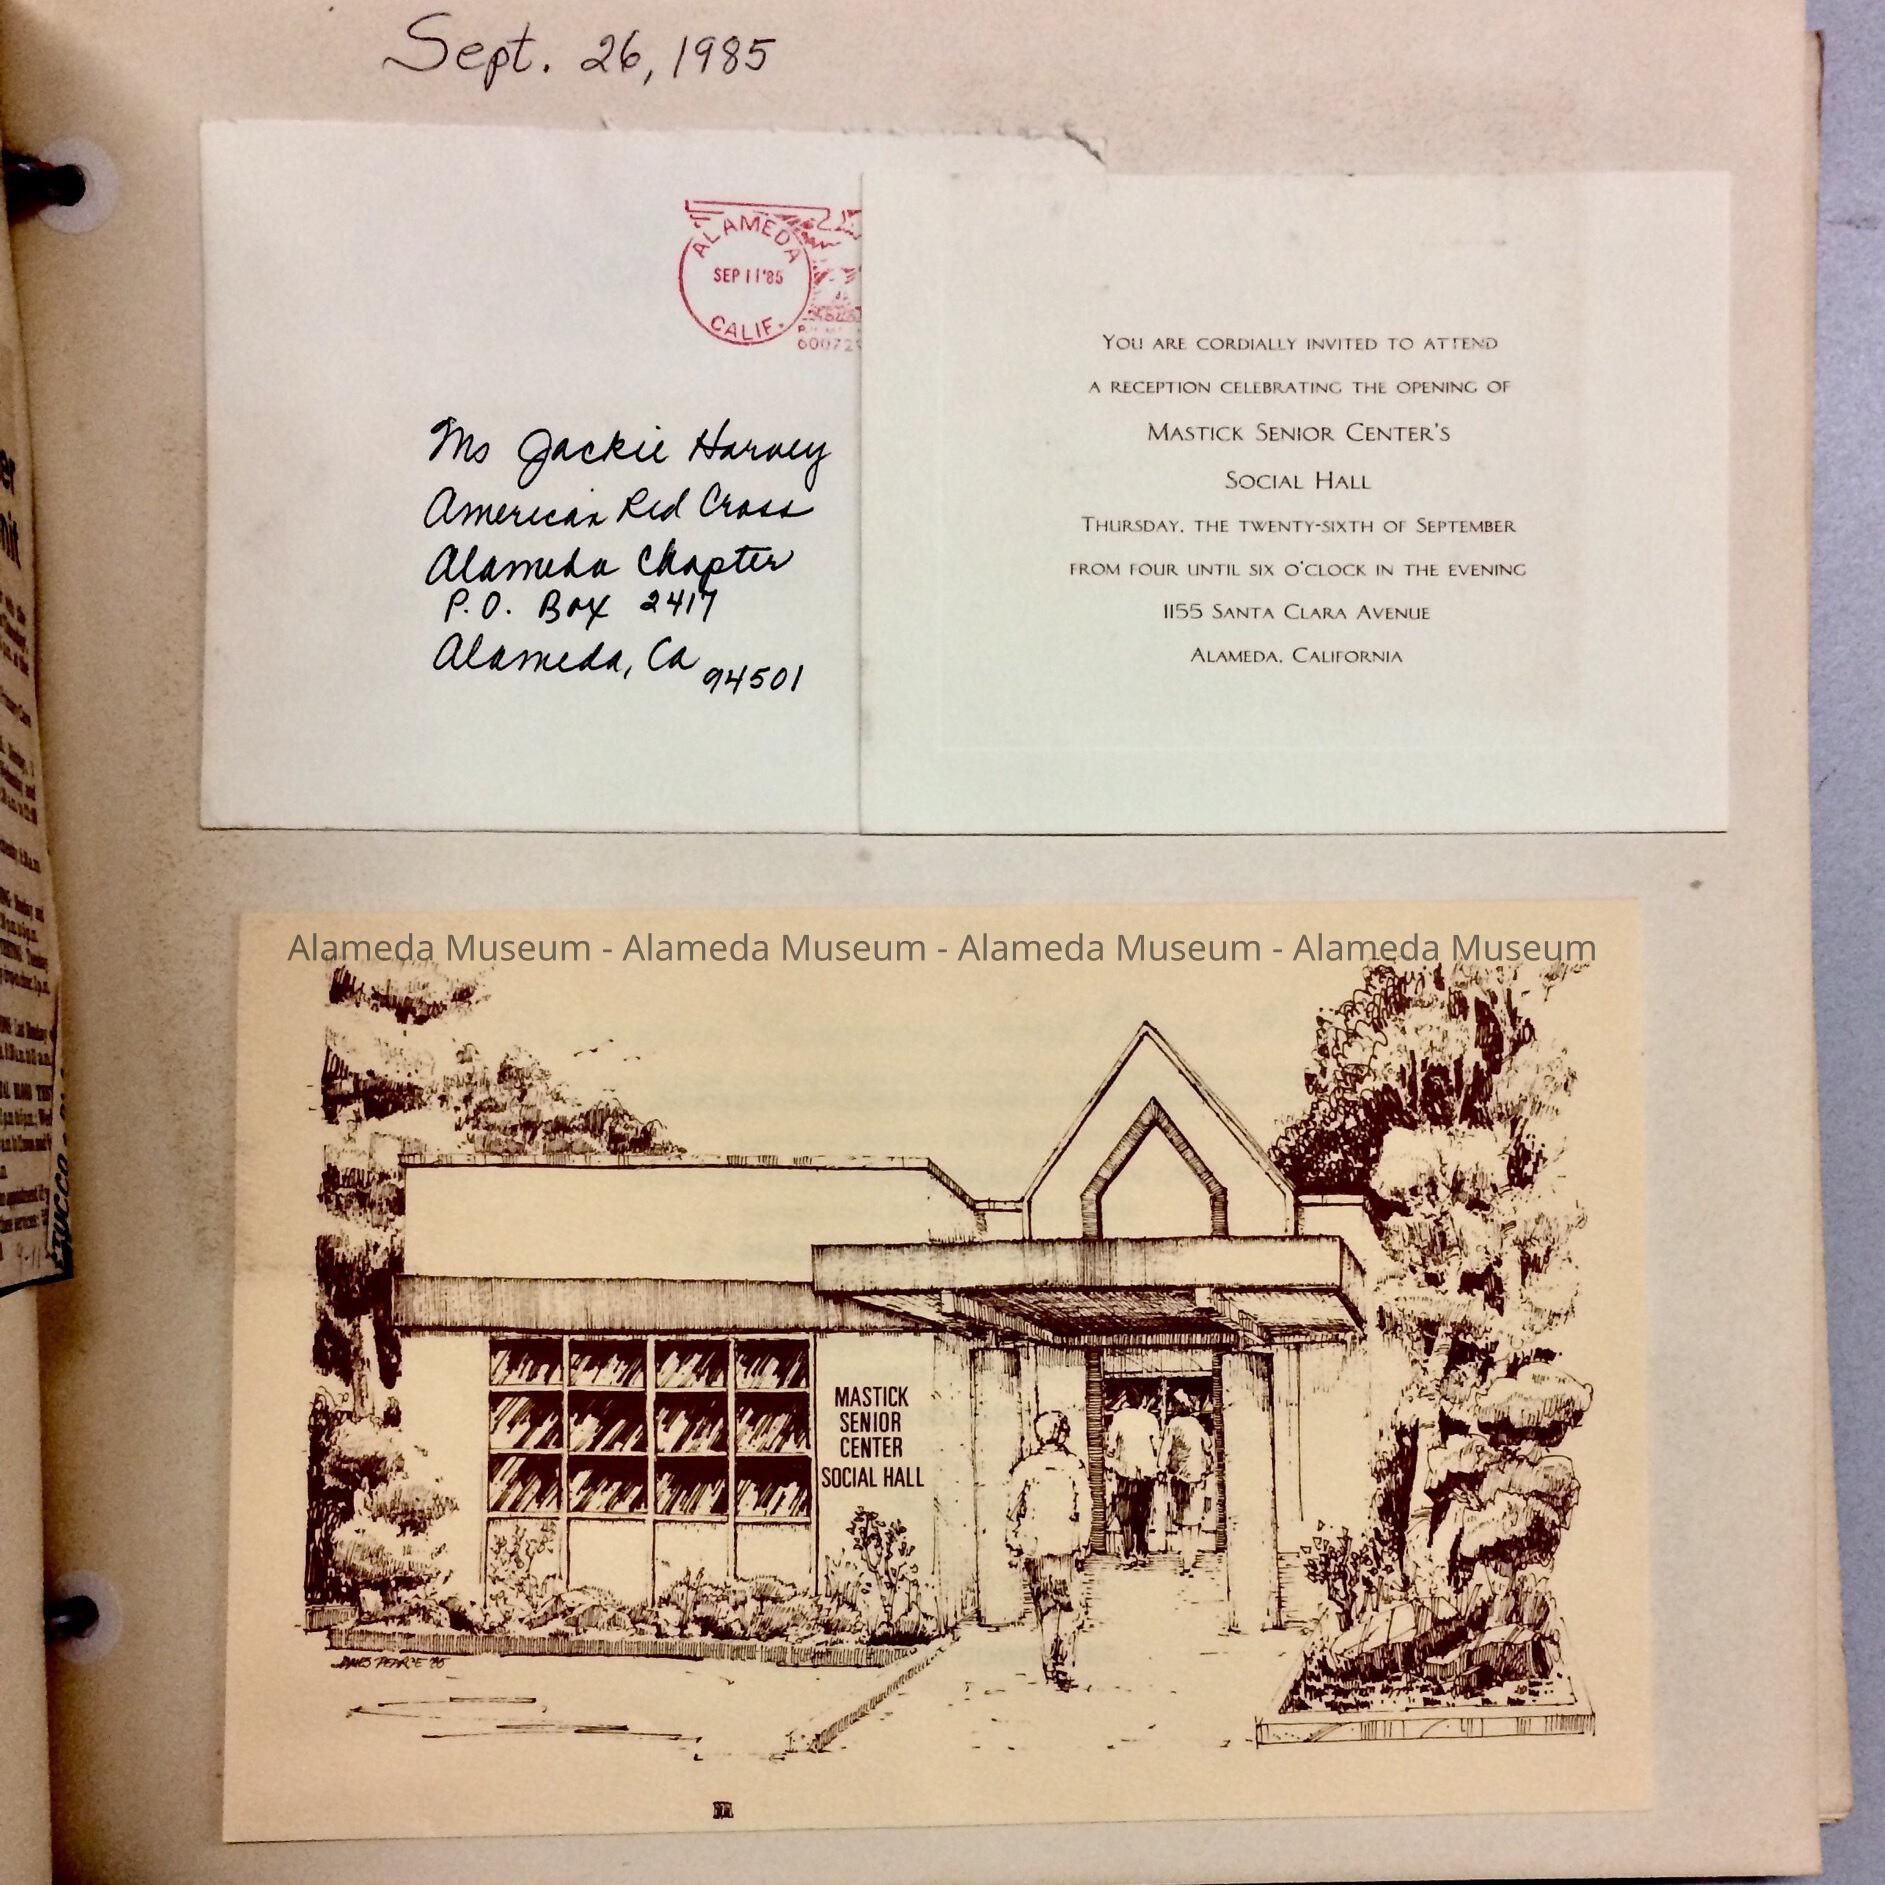 Sept. 26, 1985
ALAMEDA
SEP 11 '85
CALIF.
60072
Ms Jackie Harvey
American Red Cross
Alameda Chapter
P.O. Box 2417
Alameda, Ca 94501
YOU ARE CORDIALLY INVITED TO ATTEND
A RECEPTION CELEBRATING THE OPENING OF
MASTICK SENIOR CENTER'S
SOCIAL HALL
THURSDAY, THE TWENTY-SIXTH OF SEPTEMBER
FROM FOUR UNTIL SIX O'CLOCK IN THE EVENING
1155 SANTA CLARA AVENUE
ALAMEDA, CALIFORNIA
Alameda Museum - Alameda Museum - Alameda Museum - Alameda Museum
MASTICK
SENIOR
CENTER
SOCIAL HALL
JAMES PEARCE '85